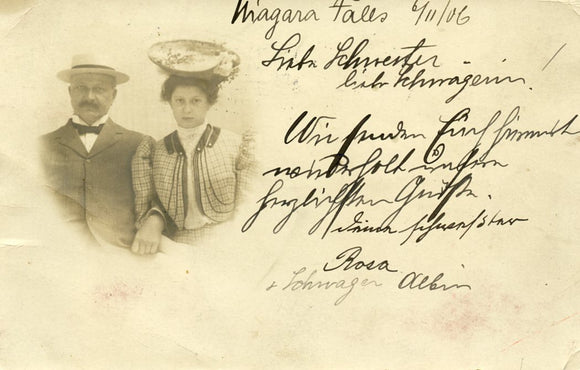 Niagara Falls 6/11/06
Liebe Schwester
liebe Schwägerin!
Wir senden Euch hiermit
wiederholt unsere
herzlichsten Grüße.
deine schwester
Rosa
+ Schwager Albin